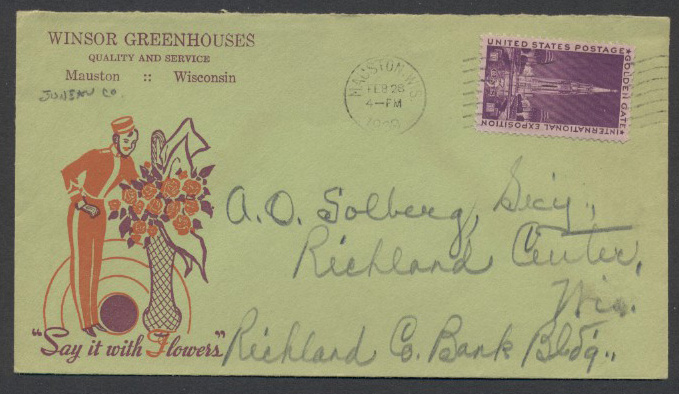 WINSOR GREENHOUSES
QUALITY AND SERVICE
Mauston :: Wisconsin
JUNEAU CO.
MAUSTON, WIS.
FEB 26
4-PM
UNITED STATES POSTAGE
GOLDEN GATE
INTERNATIONAL EXPOSITION
A. O. Solberg, Secy.,
Richland Center,
Wis.
Richland Co. Bank Bldg.,
"Say it with Flowers"